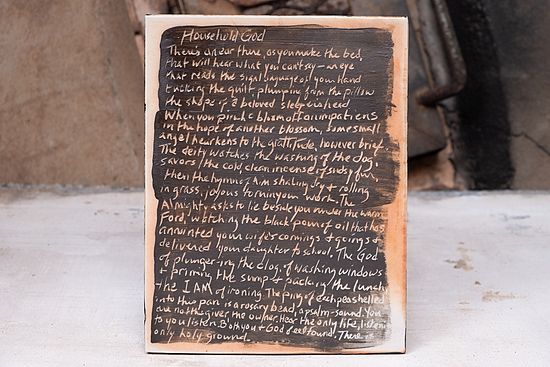 Household God
There's an ear there, as you make the bed,
that will hear what you can't say — an eye
that reads the sign language of your hand
tucking the quilt, plumping from the pillow
the shape of a beloved sleeper's head.
When you pinch a bloom off an impatiens
in the hope of another blossom, some small
angel hearkens to the gratitude, however brief.
The deity watches the washing of the dog,
savors the cold, clean incense of sudsy fur,
then the hymn of him shaking dry & rolling
in grass, joyous to ruin your work. The
Almighty asks to lie beside you under the warm
Ford, watching the black poem of oil that has
anointed your wife's comings & goings &
delivered your daughter to school. The God
of plungering the clog, of washing windows
& priming the sump & packing the lunch,
the I AM of ironing. The ping of each pea shelled
into this pan is a rosary bead, a psalm-sound. You
are not the giver, the owner. Hear the only life, listening
to you listen. Both you & God feel found. There is
only holy ground.